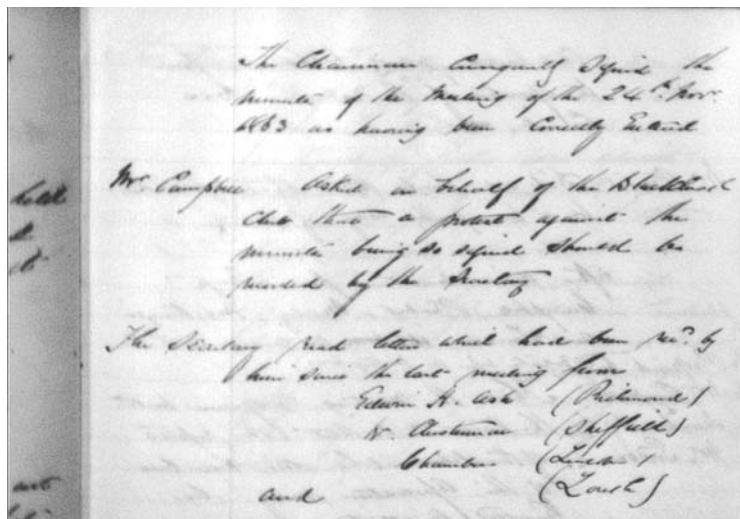 The Chairman accordingly signed the
minutes of the Meeting of the 24th Nov.
1863 as having been Correctly Entered
Mr Campbell Asked on behalf of the Blackheath
Club that a protest against the
minutes being so signed should be
recorded by the Secretary
The Secretary read letters which had been recd by
him since the last meeting from
Edwin H. Ash (Richmond)
W. Chesterman (Sheffield)
Chambers
and